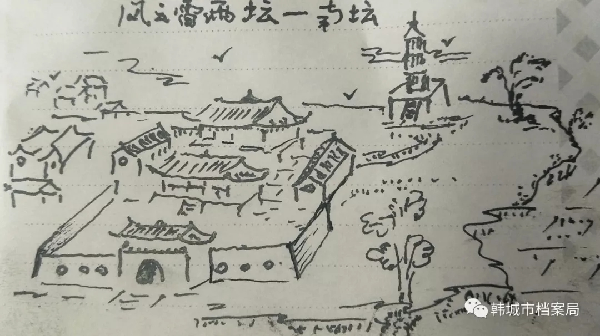 风云雷雨坛一南坛
韩城市档案局